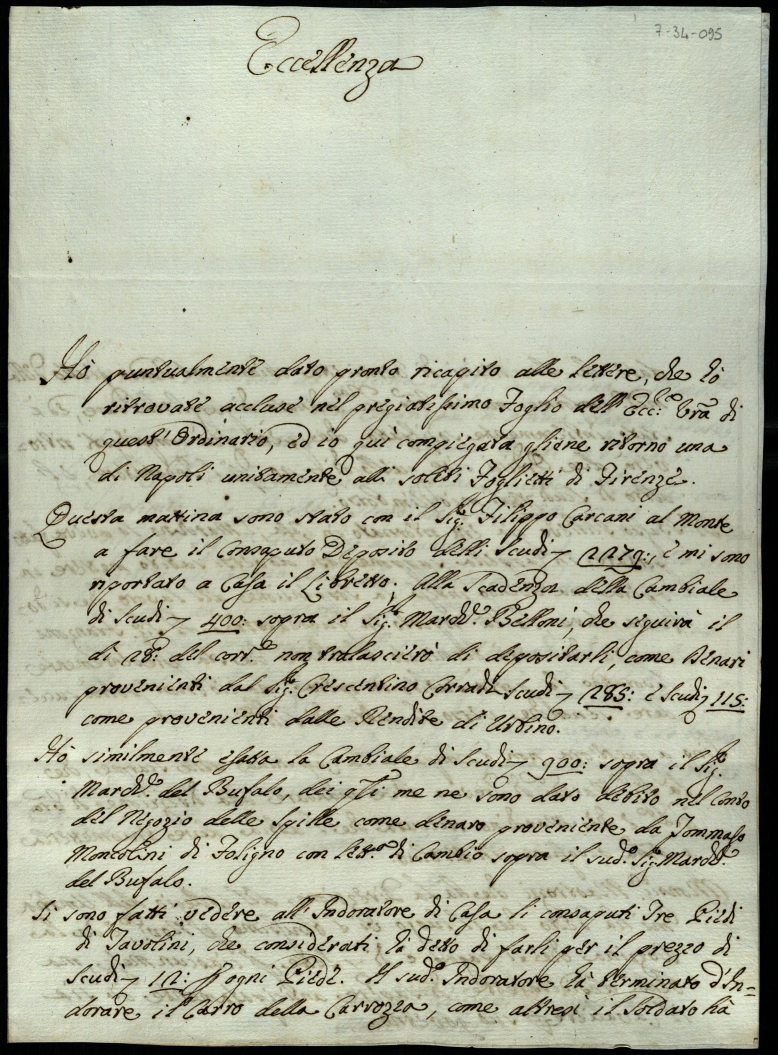 7-34-095
Eccellenza
Hò puntualmente dato pronto ricapito alle lettere, che hò
ritrovate accluse nel pregiatissimo Foglio dell' Ecc:za Vrã di
quest' Ordinario, ed io quì compiegata gliene ritorno una
di Napoli unitamente alli soliti Foglietti di Firenze.
Questa mattina sono stato con il Sig:r Filippo Carcani al Monte
a fare il consaputo Deposito delli Scudi e mi sono
riportato a Casa il Libretto; Alla Scadenza della Cambiale
di Scudi 400: sopra il Sig:r March:e Belloni, che seguirà il
dì 28: del corr:e non tralascierò di depositarli, come Denari
provenienti dal Sig:r Crescentino Corradi Scudi 285: e Scudi 115:
come provenienti dalle Rendite di Urbino.
Hò similmente esatta la Cambiale di Scudi 900: sopra il Sig:r
March:e del Bufalo, dei q̃li me ne sono dato debito nel Conto
del Negozio delle Spille come denaro proveniente da Tommaso
Moncolini di Foligno con Lett:a di Cambio sopra il sud:o Sig:r March:e
del Bufalo.
Si sono fatti vedere all' Indoratore di Casa li consaputi Tre Piedi
di Tavolini, che considerati hà detto di farli per il prezzo di
Scudi 12: ogni Piede. Il sud:o Indoratore hà terminato d'In=
dorare il Carro della Carrozza, come altresì il Soldato hà